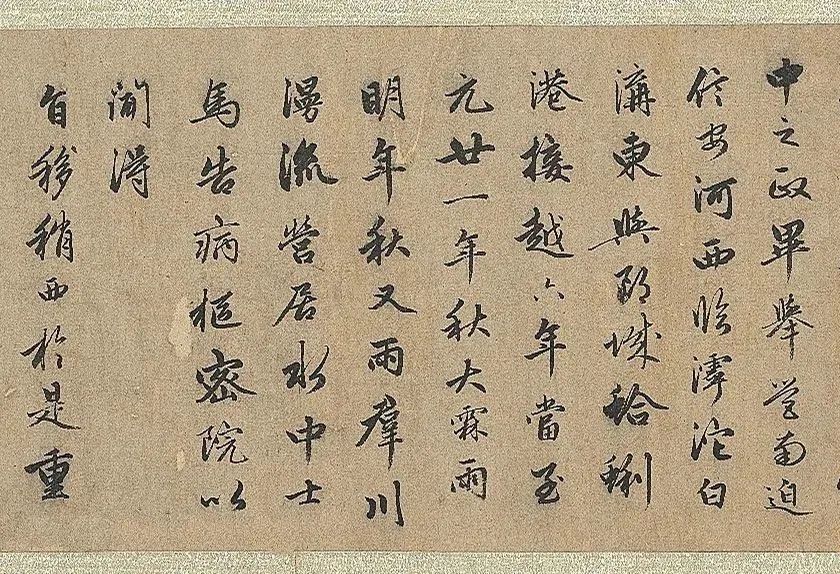 中之政畢舉營南迫
信安河西臨滹沱白
溝東與郎城蛤蜊
港接越六年當至
元廿一年秋大霖雨
明年秋又雨羣川
漫流營居水中士
馬告病樞密院以
聞得
旨移稍西於是重